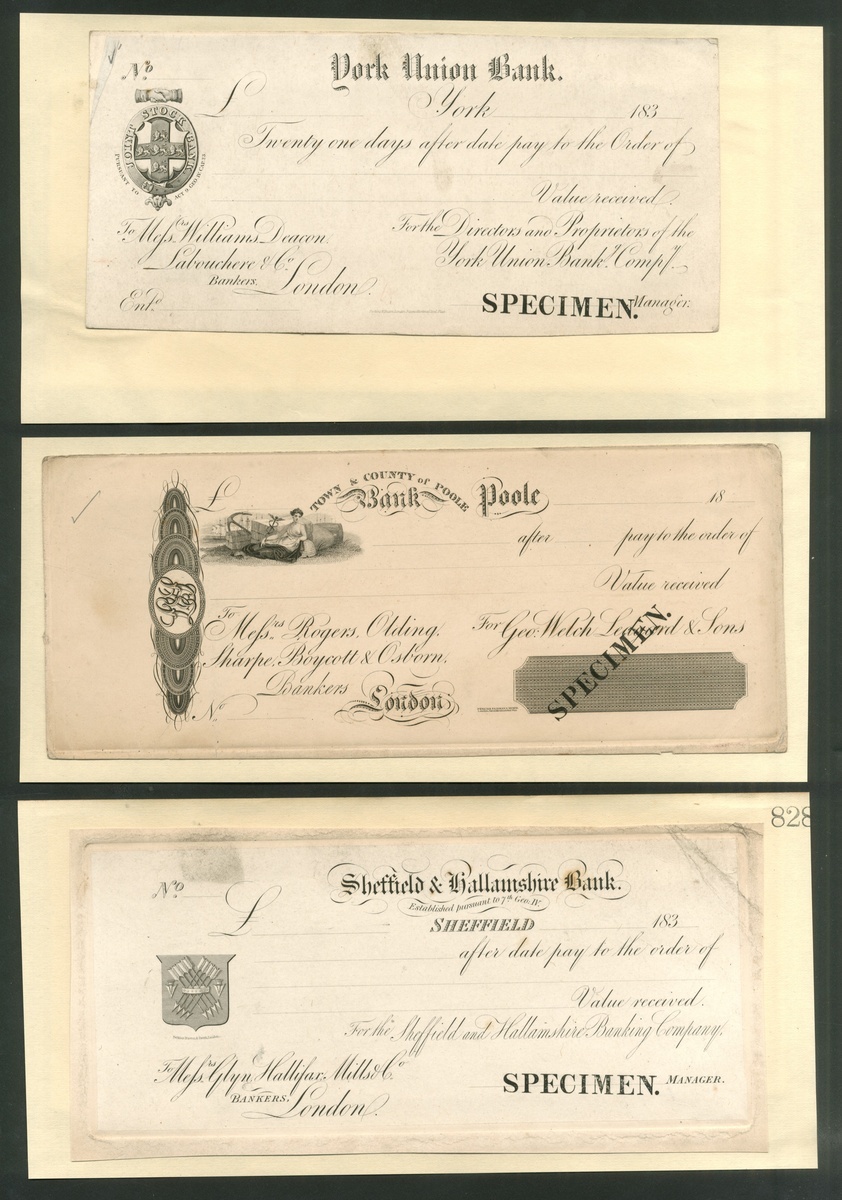 No
York Union Bank.
£
York 183
JOINT STOCK BANK
PURSUANT TO ACT 7 GEO IV CAP. 46
Twenty one days after date pay to the Order of
Value received.
To Messrs Williams Deacon
Labouchere & Co.
Bankers, London.
For the Directors and Proprietors of the
York Union Bankg. Compy.
Entd.
SPECIMEN.
Manager.
£
TOWN & COUNTY of POOLE
Bank
Poole 18
after pay to the order of
Value received
To Messrs Rogers, Olding,
Sharpe, Boycott & Osborn,
Bankers London
For Geo: Welch Ledgard & Sons
SPECIMEN.
No
828
No
Sheffield & Hallamshire Bank.
Established pursuant to 7th Geo. IV.
£
SHEFFIELD 183
after date pay to the order of
Value received.
For the Sheffield and Hallamshire Banking Company.
To Messrs Glyn, Hallifax, Mills & Co
BANKERS, London.
SPECIMEN. MANAGER.